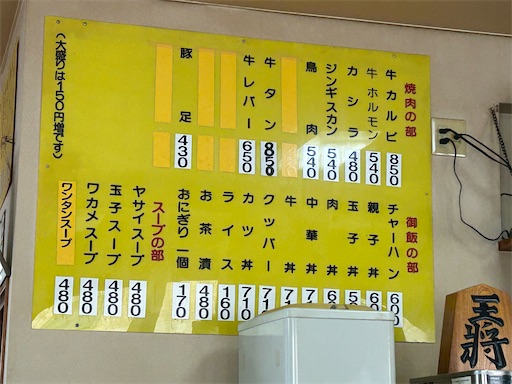 焼肉の部
牛カルビ 850
牛ホルモン 540
カシラ 480
ジンギスカン 540
鳥肉 540
牛タン 850
牛レバー 650
豚足 430
(大盛りは150円増です)
御飯の部
チャーハン 600
親子丼
玉子丼
肉丼
中華丼
牛丼
クッパー
カツ丼 710
ライス 160
お茶漬 480
おにぎり一個 170
スープの部
ヤサイスープ 480
玉子スープ 480
ワカメスープ 480
ワンタンスープ 480
王将